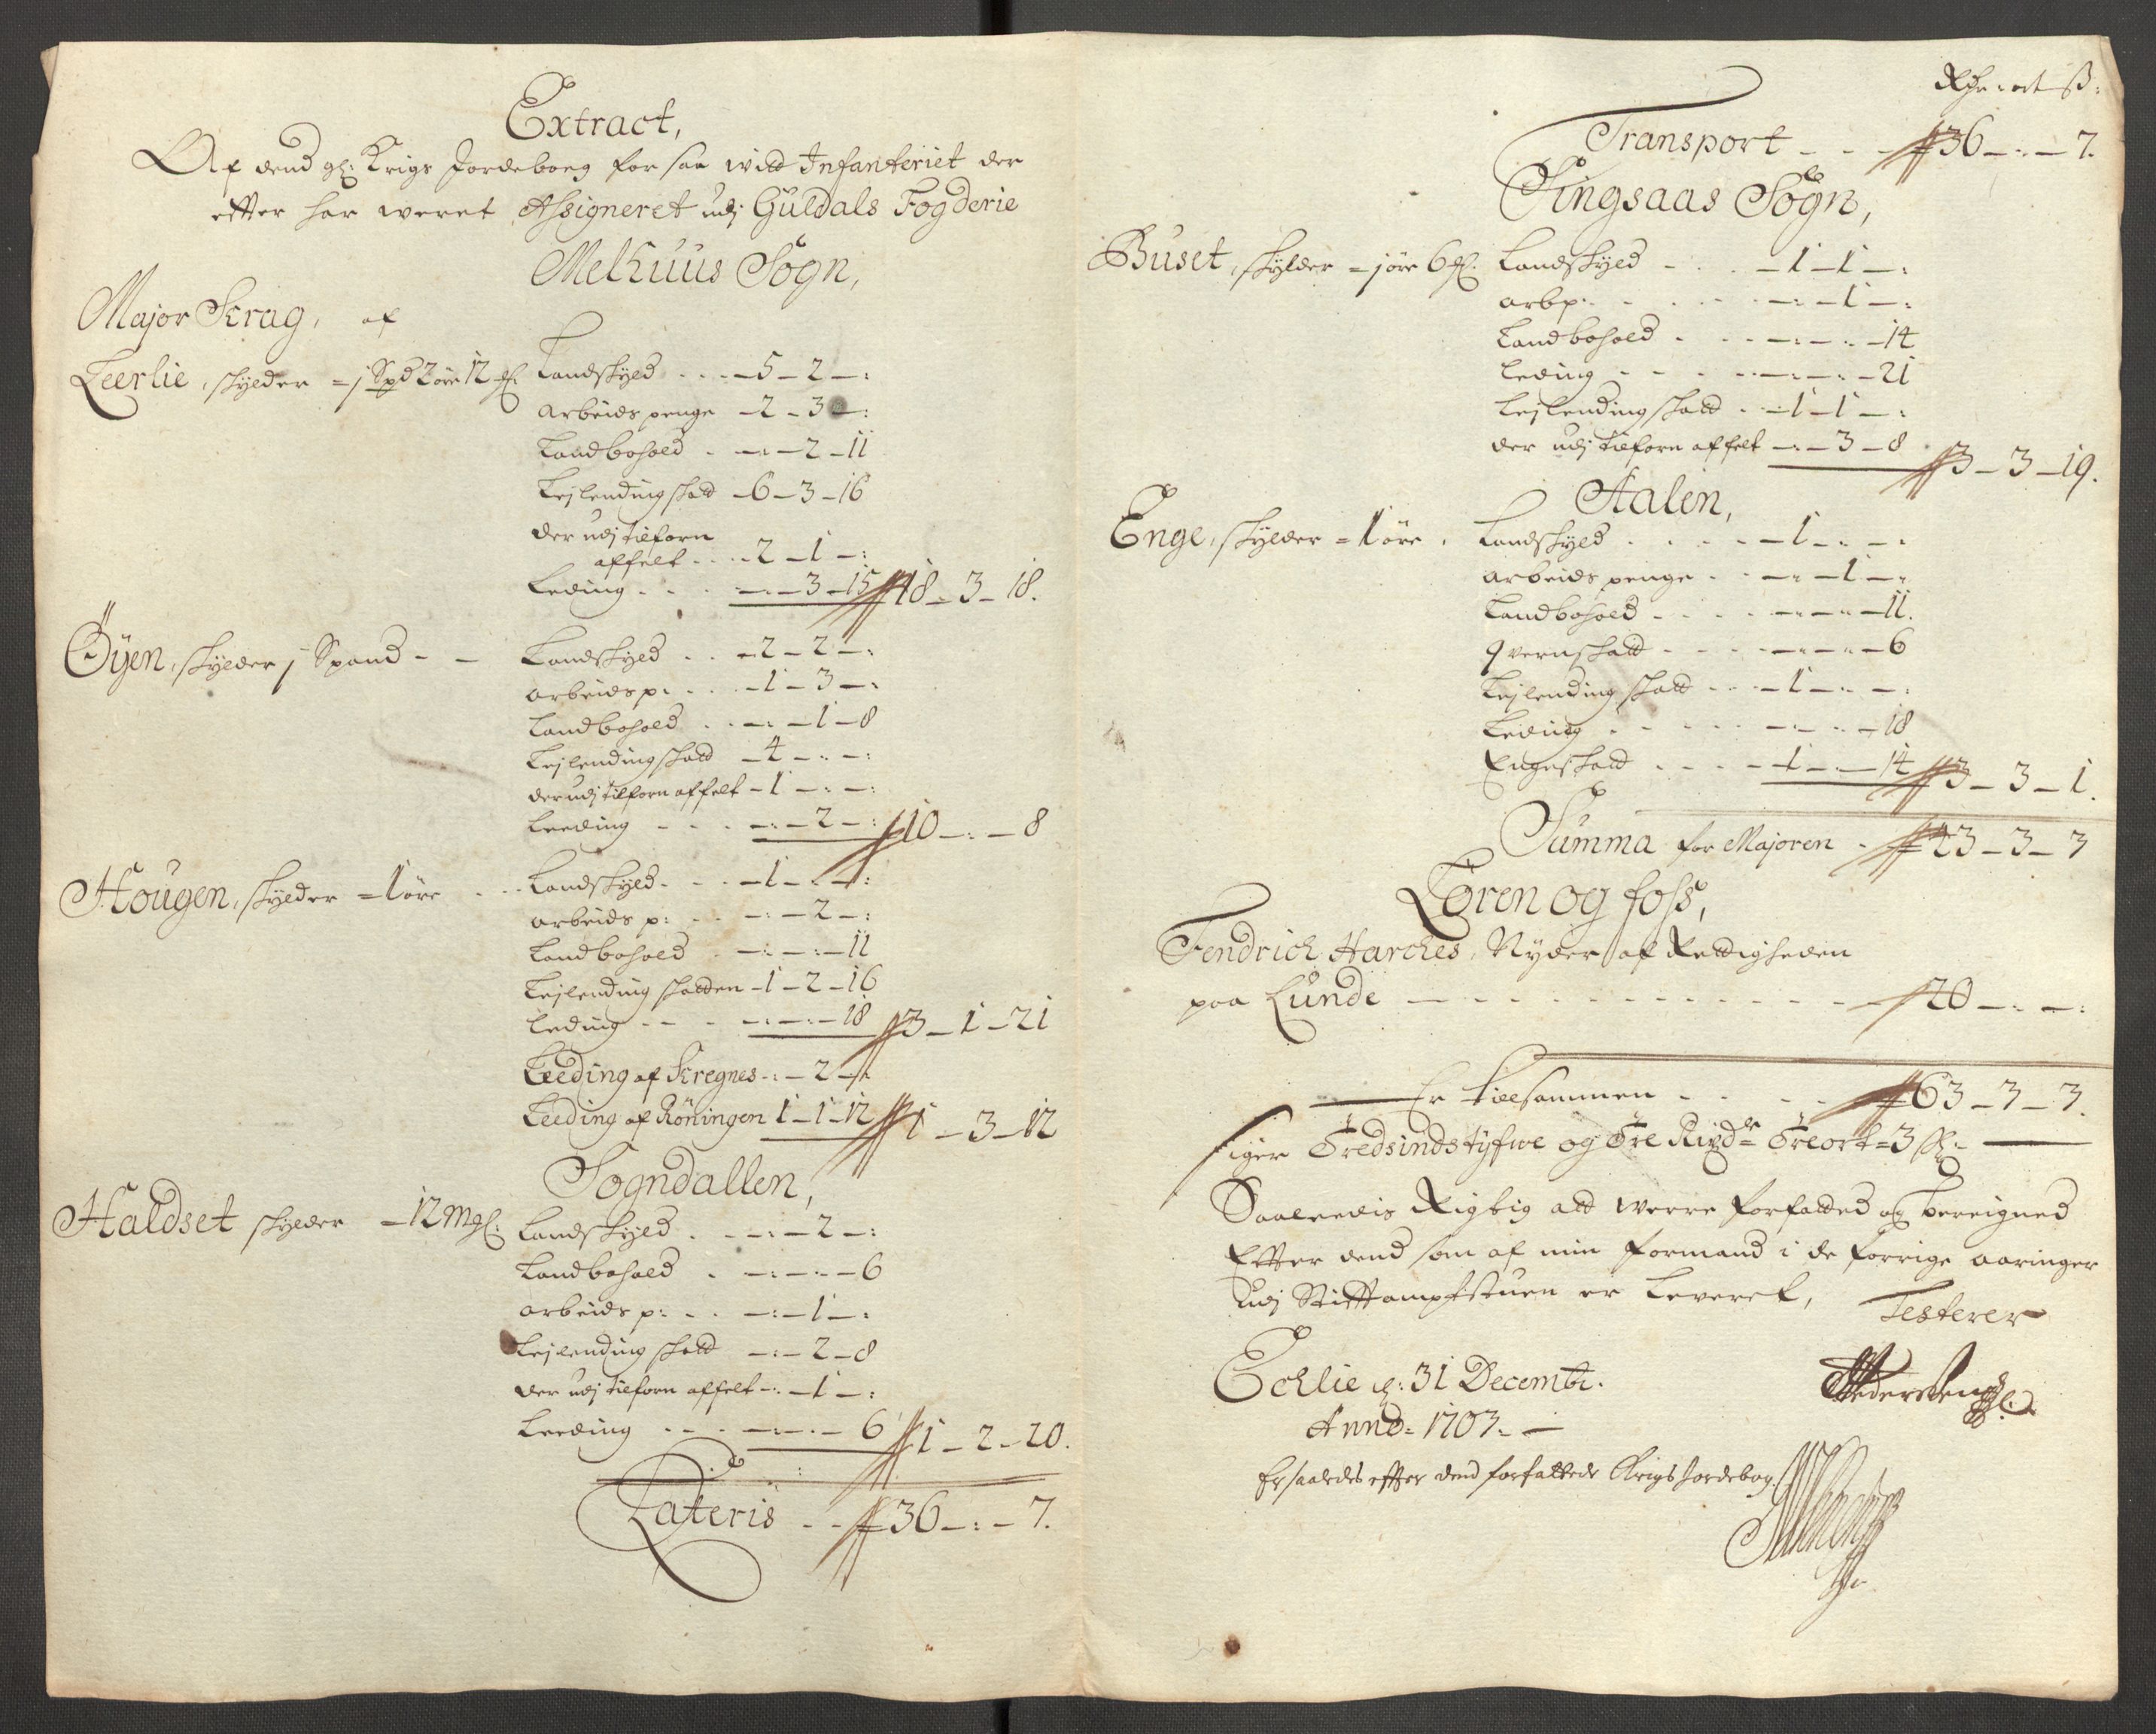 Extract,
Af dend gl: Krigs Jordeboeg for saa witt Infanteriet der
efter har weret Assigneret udj Guldals Fogderie
Melhuus Sogn,
Major Krag, af
Leerlie, skylder = j Spd 2 øre 12 ẜl. Landskyld - - - 5 - 2 - :
arbeids penge - 2 - 3 - :
Landbohold . - : - 2 - 11
Lejlending skatt - 6 - 3 - 16
der udj tilforn
affelt . . - 2 - 1 - :
Leding . . - : - 3 - 15 18 - 3 - 18.
Öyen, skylder j Spand - - Landskyld . . - 2 - 2 - :
arbeids p: . . - 1 - 3 - :
Landbohold . . - : - 1 - 8
Lejlending skatt - 4 - : - :
der udj tilforn affelt - 1 - : - :
Leeding - - . - : - 2 - : 10 - : - 8
Hougen, skylder = 1 øre . . Landskyld . - - 1 - : - :
arbeids p: - - - : - 2 - :
Landbohold . - : - : - 11
Lejlending skatten - 1 - 2 - 16
Leding - - . - : - : - 18 3 - 1 - 21
Leeding af Kregnes - : - 2 - :
Leeding af Röningen 1 - 1 - 12 1 - 3 - 12
Sogndallen,
Haldset skylder - 12 Mgl: Landskyld . - : - 2 - :
Landbohold . - : - : - 6
arbeids p: . . - : - 1 - :
Lejlending skatt - : - 2 - 8
der udj tilforn affelt - : - 1 - :
Leeding . . . - : - : - 6 1 - 2 - 20.
Lateris - - 36 - : - 7.
Rdr - ort - ß:
Transport - - - 36 - : - 7.
Singsaas Sogn,
Buset, skylder = j øre 6 ẜl. Landskyld - . . - 1 - 1 - :
arbp: - . . - : - 1 - :
Landbohold . . - : - : - 14
leding - - - - : - : - 21
Lejlending skatt . - 1 - 1 - :
der udj tilforn affelt - : - 3 - 8 3 - 3 - 19.
Aalen,
Enge, skylder = 1 øre . Landskyld . . . - 1 - : - :
arbeids penge . - : - 1 - :
Landbohold - . . - : - : - 11.
qvernskatt - - - - : - : - 6
Lejlending skatt - - - 1 - : - :
Leding . - - - : - : - 18
Engeskatt . - - - 1 - : - 14 3 - 3 - 1.
Summa for Majoren - 43 - 3 - 3
Lören og foss,
Fendrich Harches, Nyder af Rettigheden
paa Lunde - - - - - - - 20 - : - :
Er tilsammen - - - - 63 - 3 - 3.
siger Tredsindstyfwe og Tre Rixdr Tre ort = 3 ß -
Saaledis Rigtig att werre forfatted og bereigned
Efter dend som af min formand i de forrige aaringer
udj Stiftampfstuen er Leveret, Testerer
Echlie d: 31 Decembr.
Anno = 1703. -
Er saaledes efter dend forfattede Krigs Jordebog.